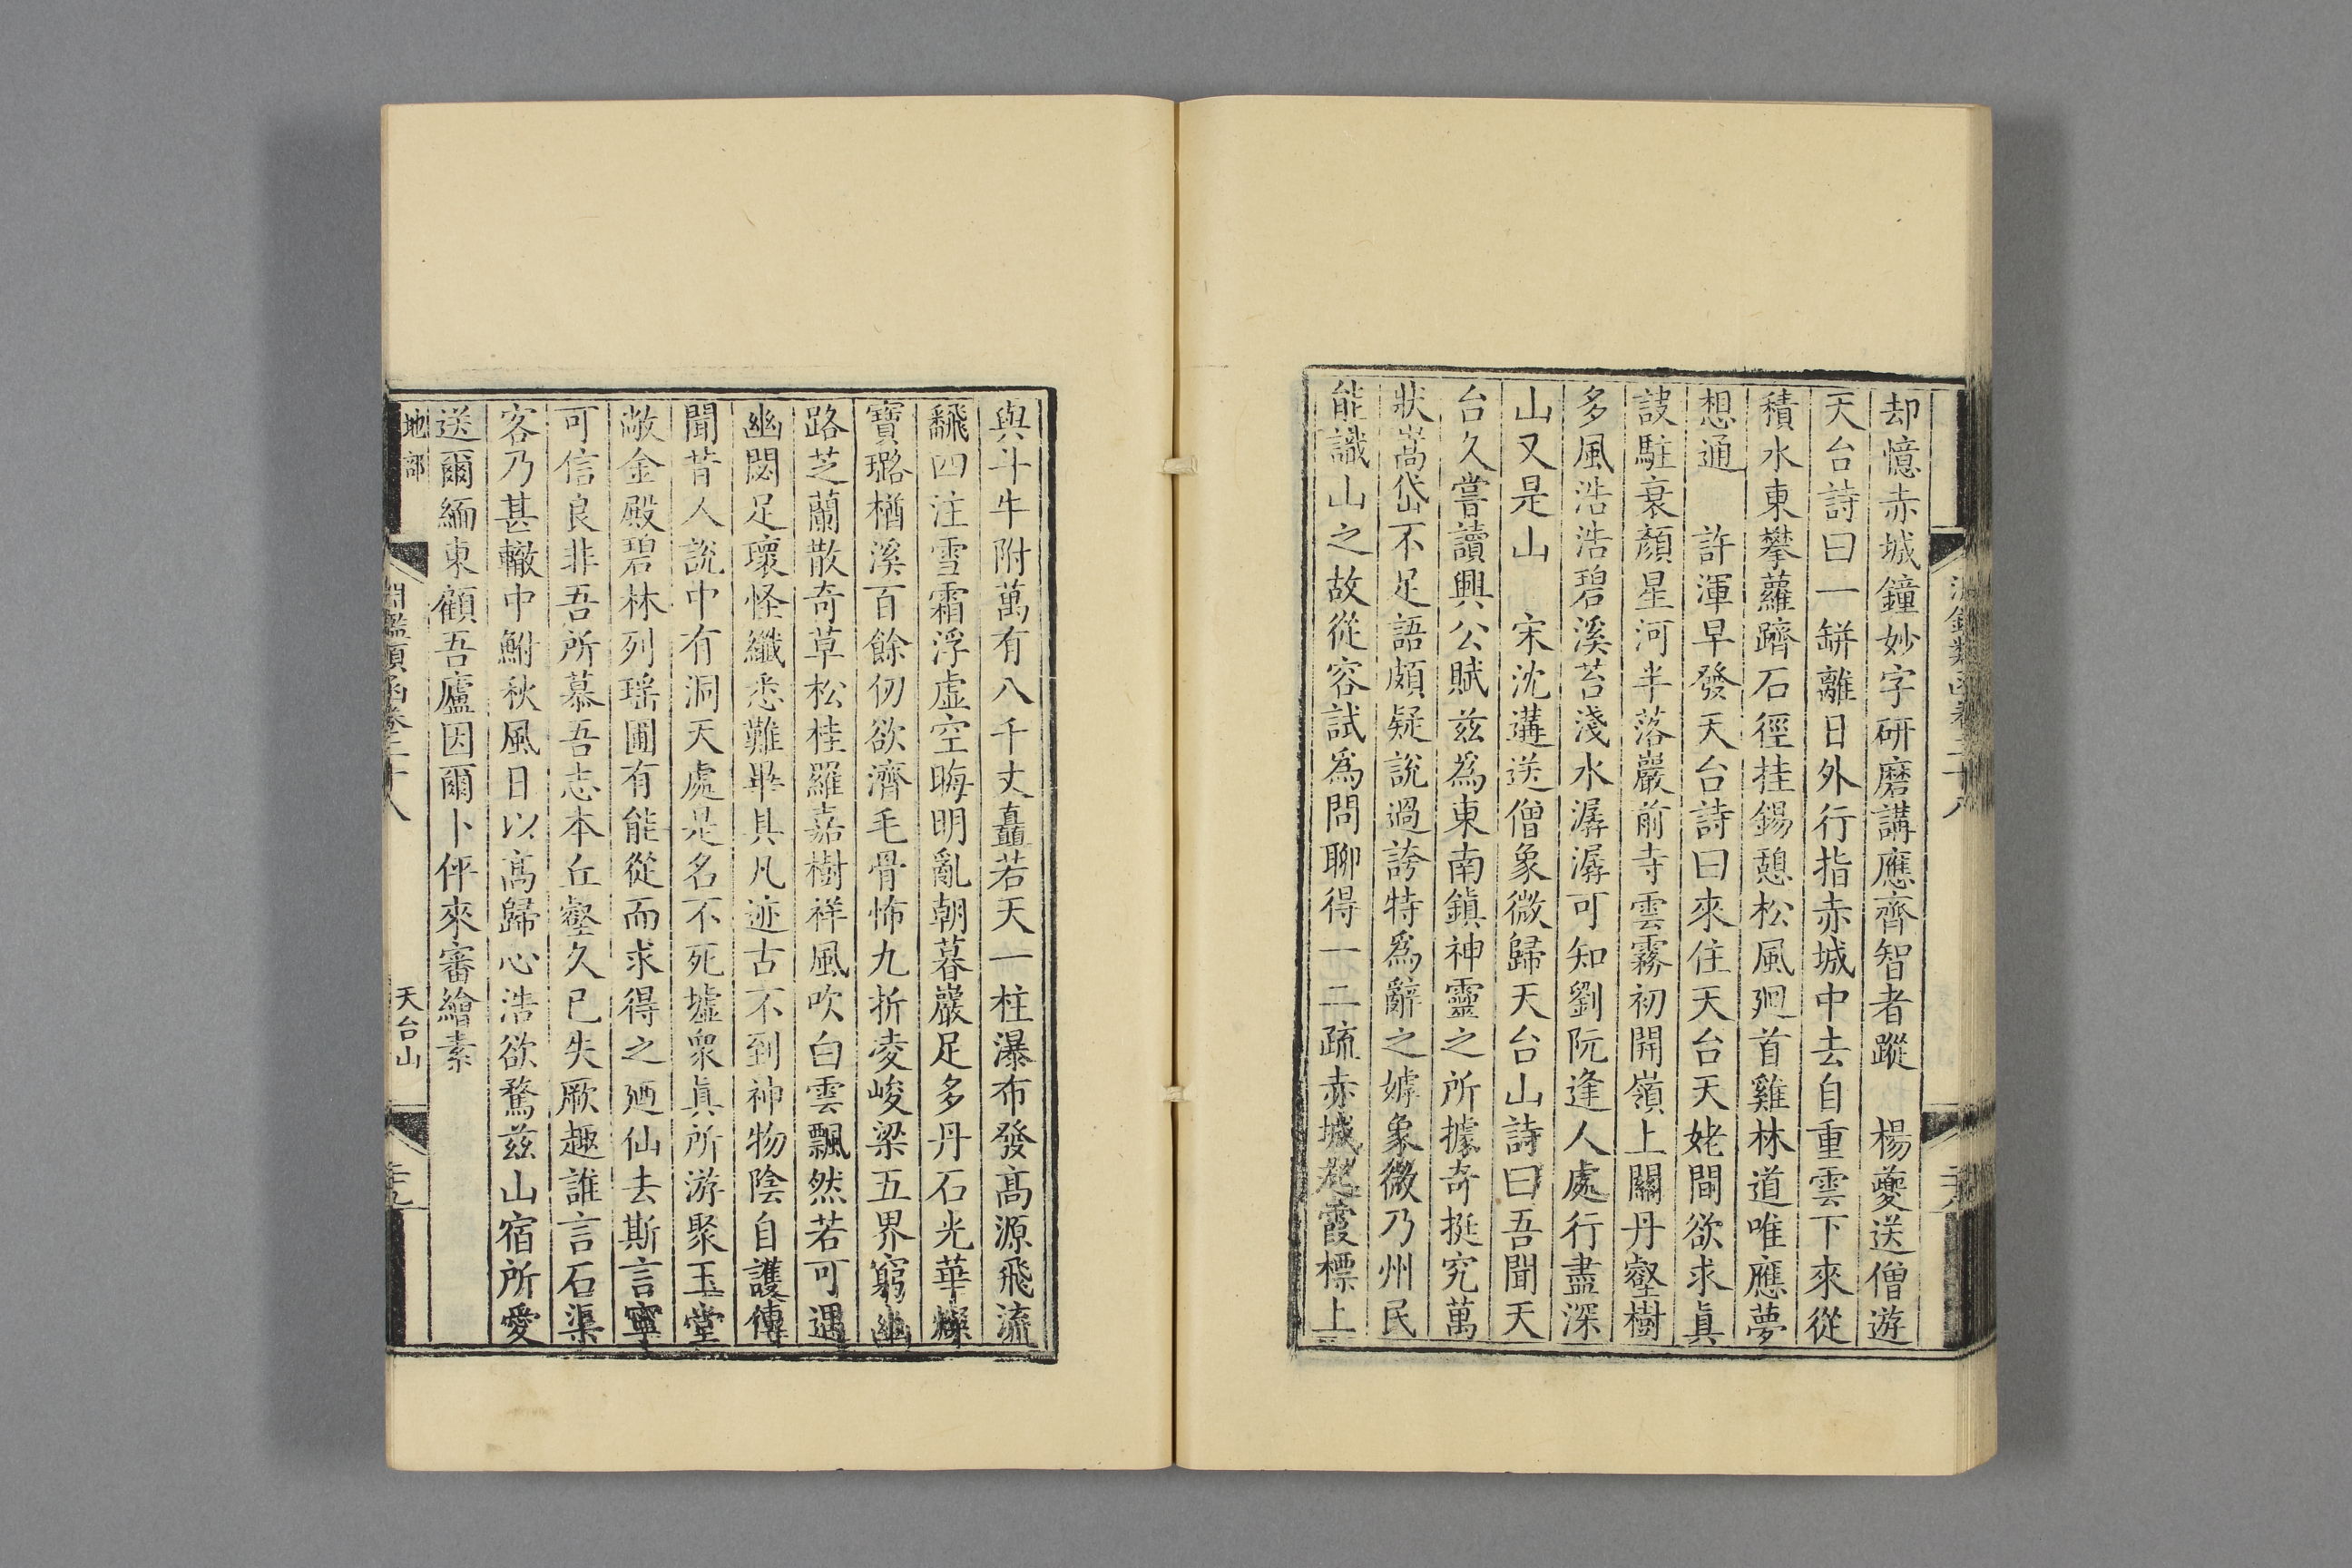 却憶赤城鐘妙字研磨講應齊智者蹤　楊夔送僧遊
天台詩曰一缾離日外行指赤城中去自重雲下來從
積水東攀蘿躋石徑挂錫憩松風廻首雞林道唯應夢
想通　許渾早發天台詩曰來住天台天姥間欲求眞
訣駐衰顏星河半落巖前寺雲霧初開嶺上關丹壑樹
多風浩浩碧溪苔淺水潺潺可知劉阮逢人處行盡深
山又是山　宋沈遘送僧象微歸天台山詩曰吾聞天
台久嘗讀興公賦兹爲東南鎮神靈之所據奇挺究萬
狀嵩岱不足語頗疑說過誇特爲辭之嫭象微乃州民
能識山之故從容試爲問聊得一二疏赤城起霞標上
與斗牛附萬有八千丈矗若天一柱瀑布發高源飛流
飜四注雪霜浮虛空晦明亂朝暮巖足多丹石光華燦
寶璐楢溪百餘仞欲濟毛骨怖九折凌峻梁五界窮幽
路芝蘭散奇草松桂羅嘉樹祥風吹白雲飄然若可遇
幽閟足瓌怪纖悉難畢具凡迹古不到神物陰自護傳
聞昔人說中有洞天處是名不死墟衆眞所游聚玉堂
敞金殿碧林列瑶圃有能從而求得之廼仙去斯言寧
可信良非吾所慕吾志本丘壑久已失厥趣誰言石渠
客乃甚轍中鮒秋風日以高歸心浩欲騖兹山宿所愛
送爾緬東顧吾廬因爾卜伻來審繪素
地部　淵鑑類函卷二十八　天台山　二十九